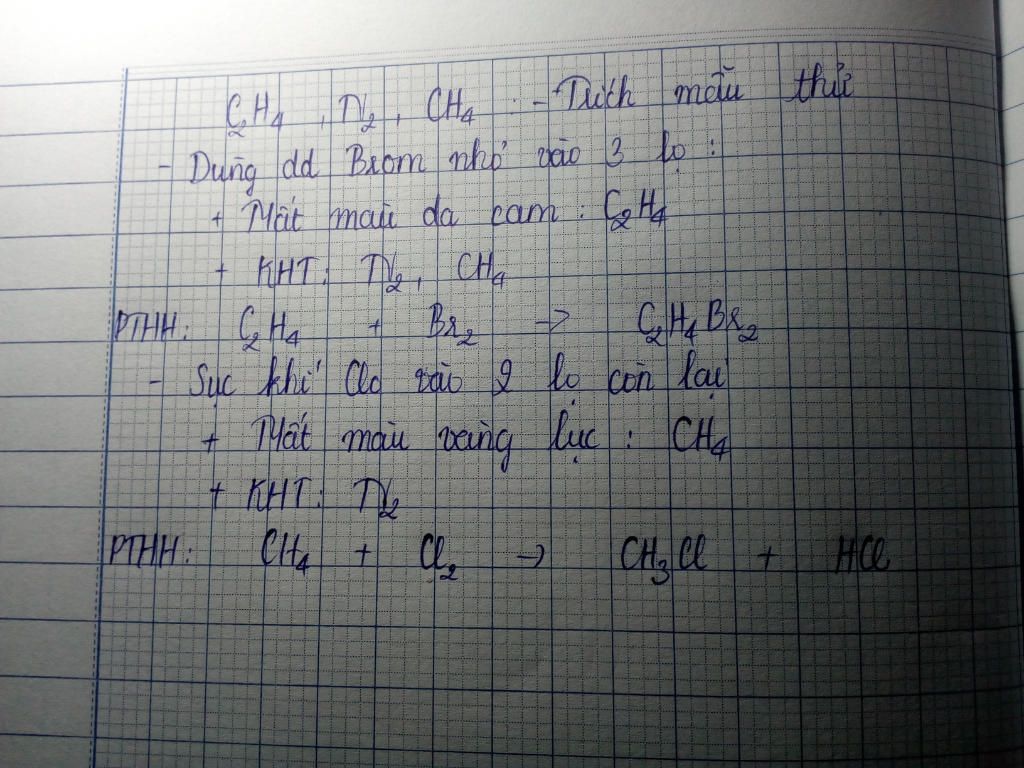 C₂H₄, N₂, CH₄ : - Trích mẫu thử
- Dùng dd Brom nhỏ vào 3 lọ :
+ Mất màu da cam : C₂H₄
+ KHT : N₂, CH₄
PTHH: C₂H₄ + Br₂ → C₂H₄Br₂
- Sục khí Clo vào 2 lọ còn lại
+ Mất màu vàng lục : CH₄
+ KHT : N₂
PTHH: CH₄ + Cl₂ → CH₃Cl + HCl